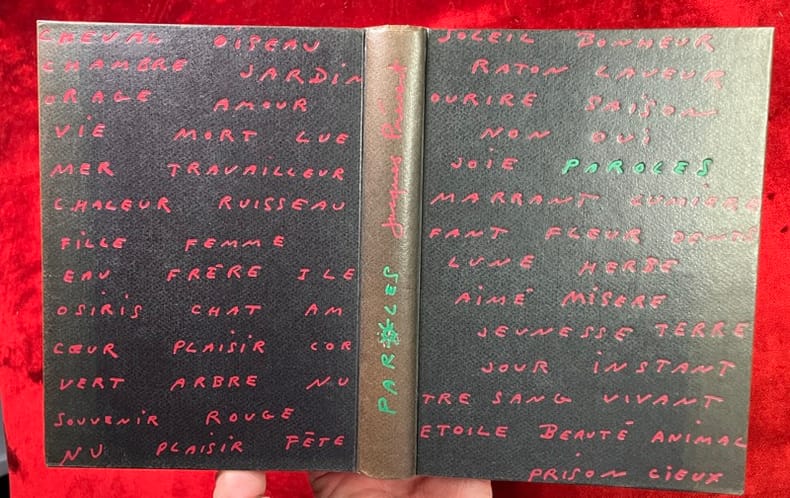 CHEVAL OISEAU
CHAMBRE JARDIN
ORAGE AMOUR
VIE MORT LUE
MER TRAVAILLEUR
CHALEUR RUISSEAU
FILLE FEMME
EAU FRÈRE ILE
OSIRIS CHAT AM
CŒUR PLAISIR COR
VERT ARBRE NU
SOUVENIR ROUGE
NU PLAISIR FÊTE
PAROLES Jacques Prévert
SOLEIL BONHEUR
RATON LAVEUR
OURIRE SAISON
NON OUI
JOIE PAROLES
MARRANT LUMIERE
FANT FLEUR DENTS
LUNE HERBE
AIMÉ MISERE
JEUNESSE TERRE
JOUR INSTANT
TRE SANG VIVANT
ETOILE BEAUTÉ ANIMAL
PRISON CIEUX